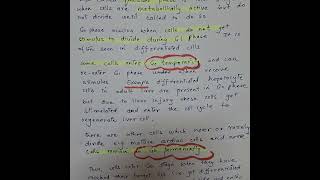 when cells are metabolically active but do
not divide until called to do so
Go phase mucous when cells do not get
stimulus to divide during G1 phase. It is
Go seen in differentiated cells
some cells enter Go temporary and can
re-enter G1 phase under when receive
stimulus Example differentiated hepatocyte
cells in adult liver are present in Go phase
but due to liver injury these cells get
stimulated and enter the cell cycle to
regenerate liver cell.
there are other cells which never or rarely
divide eg mature cardiac cells and nerve
cells remain in Go permanently
Thus, cells enter Go stage when they have